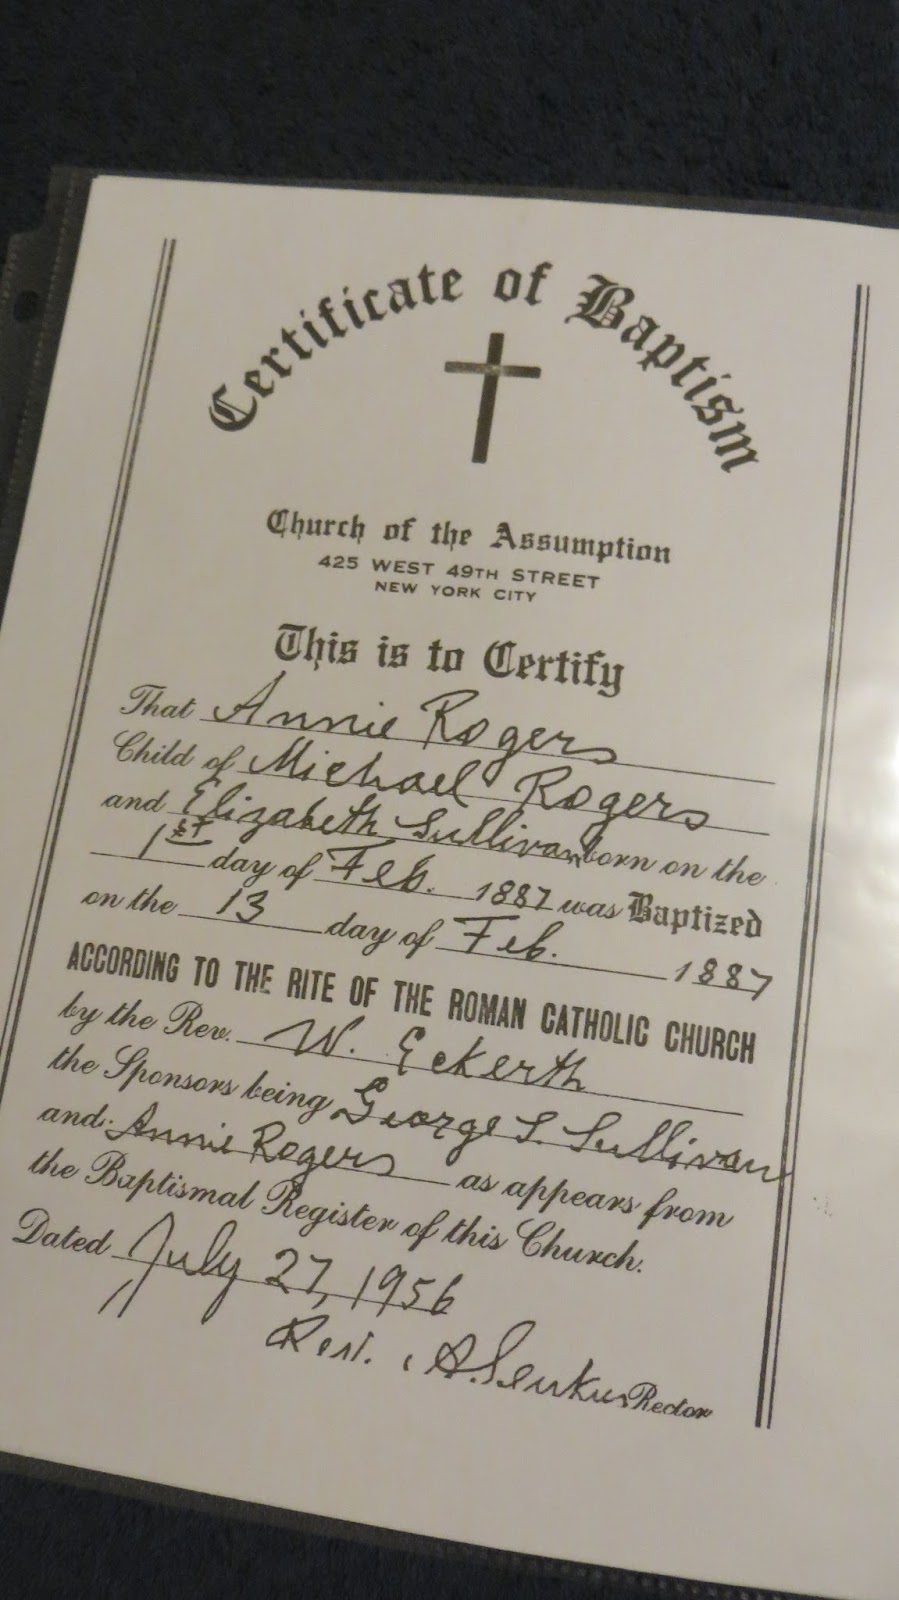 Certificate of Baptism
Church of the Assumption
425 WEST 49TH STREET
NEW YORK CITY
This is to Certify
That Annie Rogers
Child of Michael Rogers
and Elizabeth Sullivan born on the
1st day of Feb. 1887 was Baptized
on the 13 day of Feb. 1887
ACCORDING TO THE RITE OF THE ROMAN CATHOLIC CHURCH
by the Rev. W. Eckerth
the Sponsors being George S. Sullivan
and Annie Rogers as appears from
the Baptismal Register of this Church.
Dated July 27, 1956
Rev. A. Rector